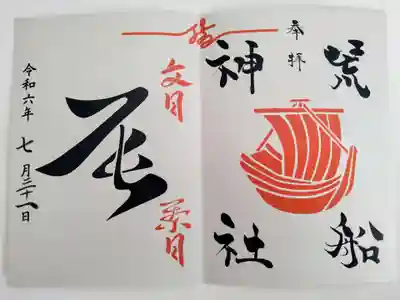 荒船
奉拝
神社
文月
葉月
辰
令和六年 七月三十一日